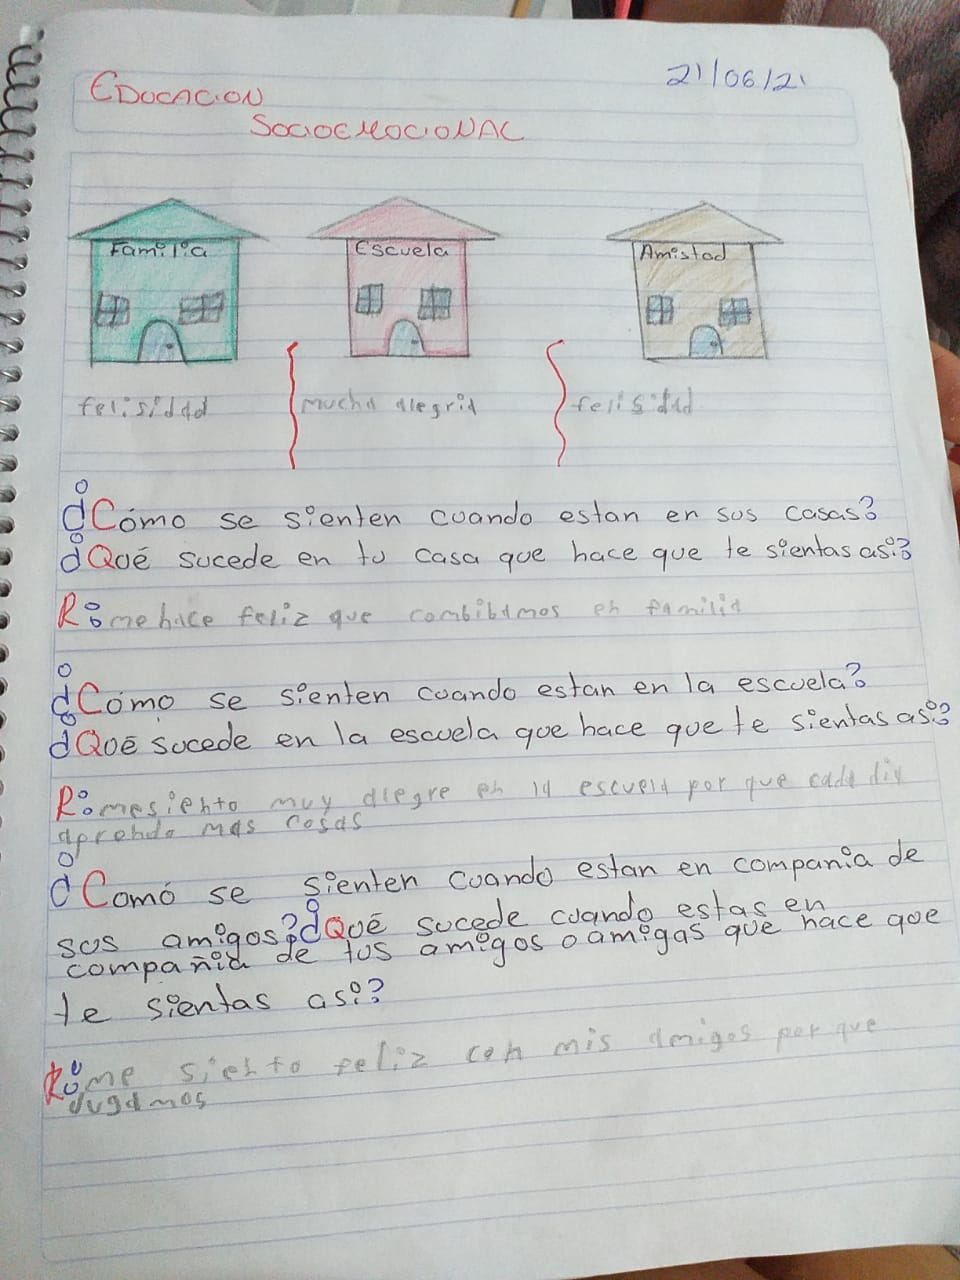 21/06/21
EDUCACION
SOCIOEMOCIONAL
Familia Escuela Amistad
felisidad mucha alegria felisidad
¿Cómo se sienten cuando estan en sus casas?
¿Qué sucede en tu casa que hace que te sientas asi?
R: me hace feliz que combibamos en familia
¿Cómo se sienten cuando estan en la escuela?
¿Qué sucede en la escuela que hace que te sientas asi?
R: me siento muy alegre en la escuela por que cada dia
aprendo mas cosas
¿Comó se sienten cuando estan en compania de
sus amigos? ¿Qué sucede cuando estas en
compañia de tus amigos o amigas que hace que
te sientas asi?
R: me siento feliz con mis amigos por que
jugamos